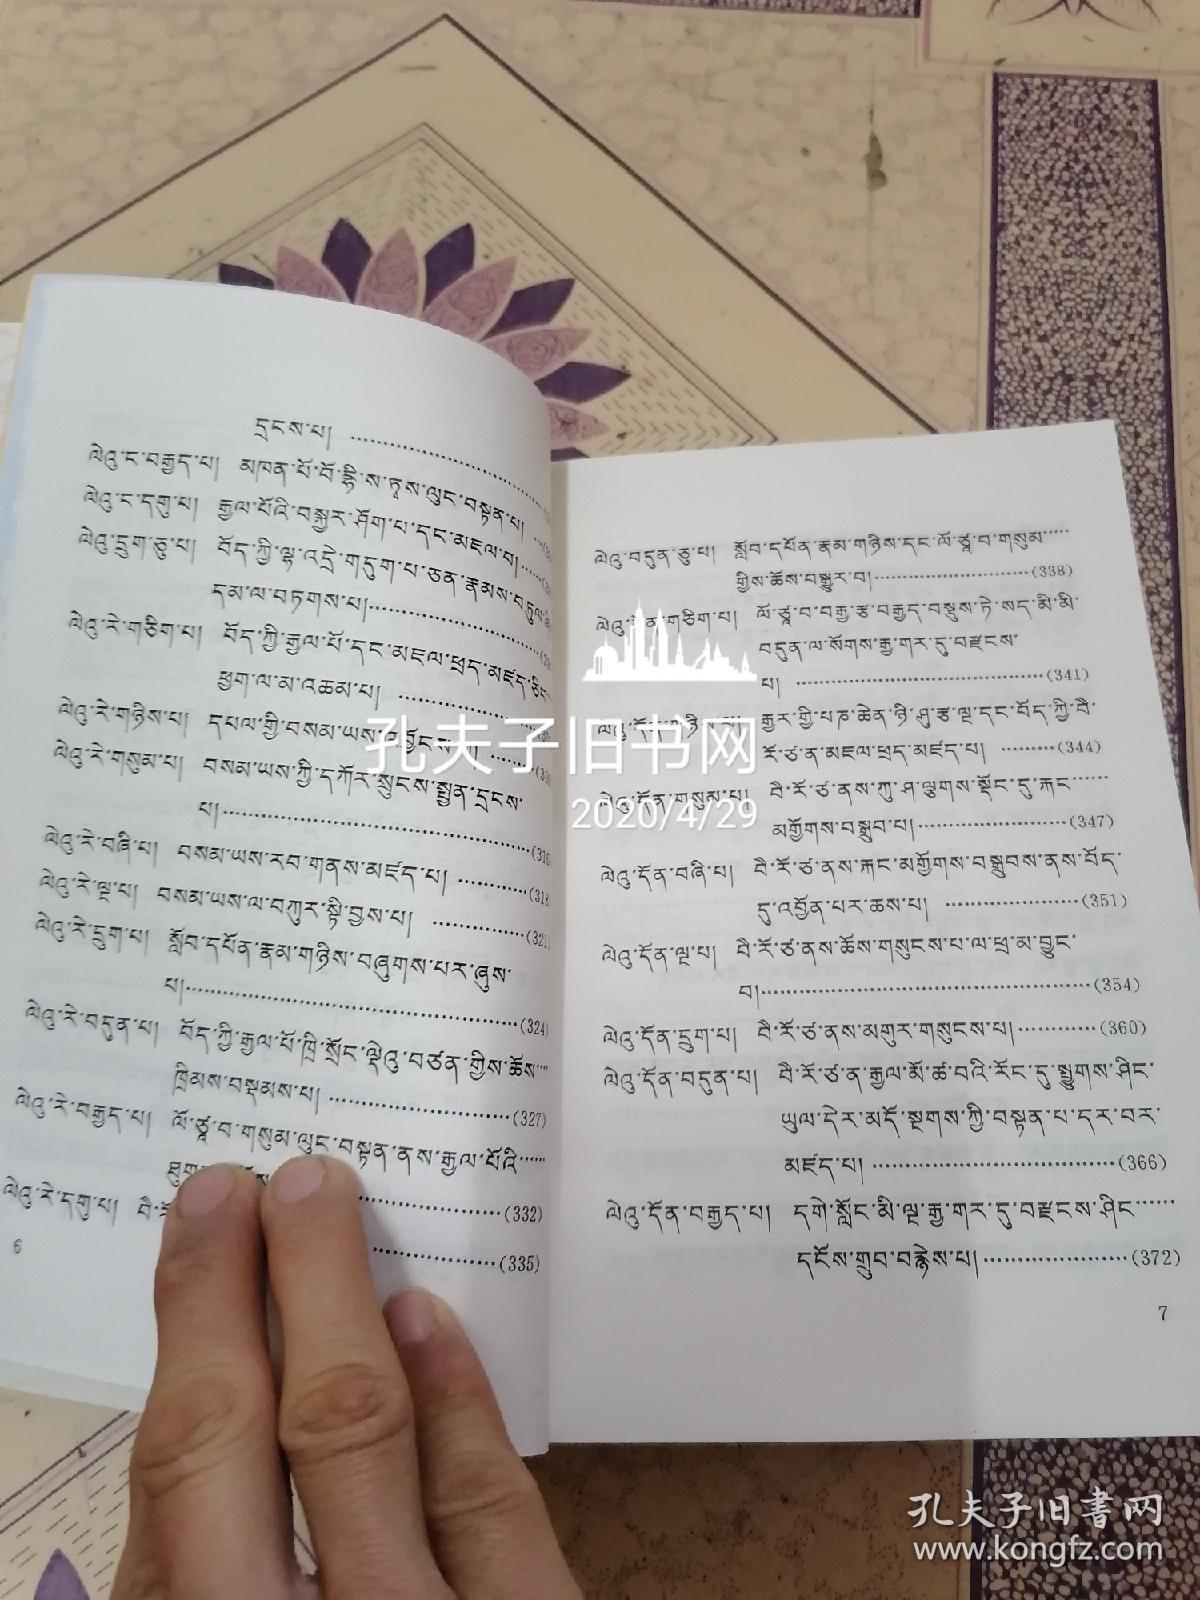 དྲངས་པ། ……………………
ལེའུ་ང་བརྒྱད་པ། མཁན་པོ་བོ་དྷི་ས་ཏྭས་ལུང་བསྟན་པ། …
ལེའུ་ང་དགུ་པ། རྒྱལ་པོའི་བསྐྱར་ཤོག་པ་དང་མཇལ་བ།……
ལེའུ་དྲུག་ཅུ་པ། བོད་ཀྱི་ལྷ་འདྲེ་གདུག་པ་ཅན་རྣམས་བཏུལ་
དམ་ལ་བཏགས་པ།……………………
ལེའུ་རེ་གཅིག་པ། བོད་ཀྱི་རྒྱལ་པོ་དང་མཇལ་ཕྲད་མཛད་ཅིང་
ཕྱག་ལ་མ་འཆམ་པ། ……………………
ལེའུ་རེ་གཉིས་པ། དཔལ་གྱི་བསམ་ཡས་
ལེའུ་རེ་གསུམ་པ། བསམ་ཡས་ཀྱི་དཀོར་སྲུངས་སྤྱན་དྲངས་
པ།……………………………………(316
ལེའུ་རེ་བཞི་པ། བསམ་ཡས་རབ་གནས་མཛད་པ། …………(318
ལེའུ་རེ་ལྔ་པ། བསམ་ཡས་ལ་བཀུར་སྟི་བྱས་པ། ……………(321
ལེའུ་རེ་དྲུག་པ། སློབ་དཔོན་རྣམ་གཉིས་བཞུགས་པར་ཞུས་
པ།……………………………………(324)
ལེའུ་རེ་བདུན་པ། བོད་ཀྱི་རྒྱལ་པོ་ཁྲི་སྲོང་ལྡེའུ་བཙན་གྱིས་ཆོས་…
ཁྲིམས་བསྡམས་པ། ……………………(327)
ལེའུ་རེ་བརྒྱད་པ། ལོ་ཙཱ་བ་གསུམ་ལུང་བསྟན་ནས་རྒྱལ་པོའི་……
……………………(332)
ལེའུ་རེ་དགུ་པ། བཻ་
……………………(335)
6
ལེའུ་བདུན་ཅུ་པ། སློབ་དཔོན་རྣམ་གཉིས་དང་ལོ་ཙཱ་བ་གསུམ་……
གྱིས་ཆོས་བསྒྱུར་བ།……………………(338)
ལེའུ་ གཅིག་པ། ལོ་ཙཱ་བ་བརྒྱ་རྩ་བརྒྱད་བསྡུས་ཏེ་སད་མི་མི་
བདུན་ལ་སོགས་རྒྱ་གར་དུ་བརྫངས་
པ། ……………………………(341)
ལེའུ་དོན་གཉིས་པ། རྒྱར་གྱི་པཎ་ཆེན་ཉི་ཤུ་རྩ་ལྔ་དང་བོད་ཀྱི་བཻ་
རོ་ཙ་ན་མཇལ་ཕྲད་མཛད་པ། ………(344)
ལེའུ་དོན་གསུམ་པ། བཻ་རོ་ཙ་ནས་ཀུ་ཤ་ལྕུགས་སྡོང་དུ་རྐང་……
མགྱོགས་བསྒྲུབ་པ།…………………(347)
ལེའུ་དོན་བཞི་པ། བཻ་རོ་ཙ་ནས་རྐང་མགྱོགས་བསྒྲུབས་ནས་བོད་
དུ་འབྱོན་པར་ཆས་པ། ………………(351)
ལེའུ་དོན་ལྔ་པ། བཻ་རོ་ཙ་ནས་ཆོས་གསུངས་པ་ལ་ཕྲ་མ་བྱུང་
བ།……………………………………(354)
ལེའུ་དོན་དྲུག་པ། བཻ་རོ་ཙ་ནས་མགུར་གསུངས་པ།…………(360)
ལེའུ་དོན་བདུན་པ། བཻ་རོ་ཙ་ན་རྒྱལ་མོ་ཚ་བའི་རོང་དུ་སྤྱུགས་ཤིང་
ཡུལ་དེར་མདོ་སྔགས་ཀྱི་བསྟན་པ་དར་བར་
མཛད་པ། ……………………………(366)
ལེའུ་དོན་བརྒྱད་པ། དགེ་སློང་མི་ལྔ་རྒྱ་གར་དུ་བརྫངས་ཤིང་……
དངོས་གྲུབ་བརྙེས་པ།…………………(372)
7
孔夫子旧书网
2020/4/29
孔夫子旧书网
www.kongfz.com